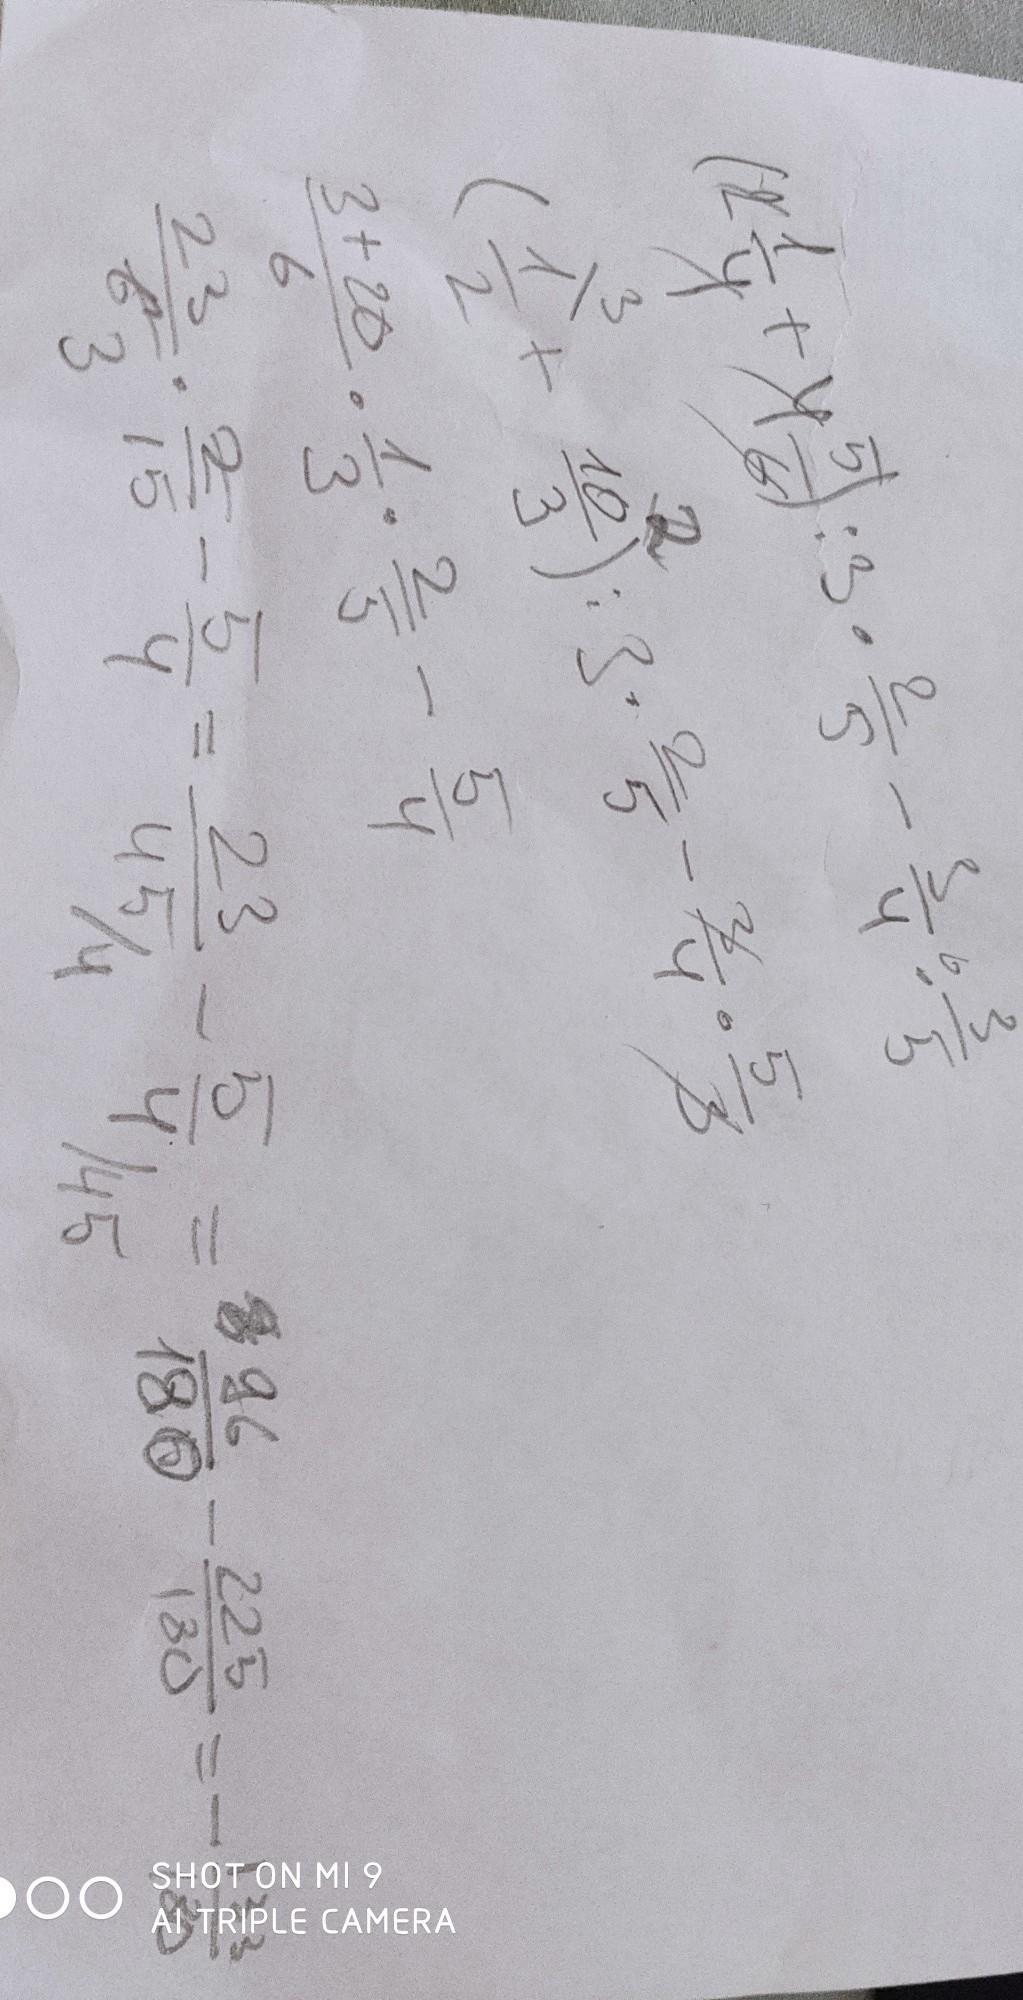 (2 1/4 + 4 5/6) : 3 · 2/5 - 3/4 : 3/5
(1/2 + 10/3) : 3 · 2/5 - 3/4 · 5/3
3+20/6 · 1/3 · 2/5 - 5/4
23/6 3 · 2/15 - 5/4 = 23/45 /4 - 5/4 /45 = 96/180 - 225/180 = -
SHOT ON MI 9
AI TRIPLE CAMERA